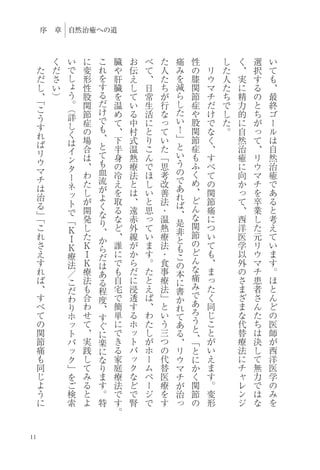 序　章　自然治癒への道
いても、最終ゴールは自然治癒であると考えています。ほとんどの医師が西洋医学のみを
選択するのとちがって、リウマチを卒業した元リウマチ患者さんたちは決して無力ではな
く、実に精力的に自然治癒に向かって、西洋医学以外のさまざまな代替療法にチャレンジ
した人たちでした。
リウマチだけでなく、すべての関節痛についても、まったく同じことがいえます。変形
性の膝関節症や股関節症もふくめ、どんな関節のどんな痛みであろうと、「とにかく関節の
痛みを減らしたい！」というのであれば、是非ともこの本に書かれてある、リウマチが治っ
た人たちが行なっていた「思考改善法・温熱療法・食事療法」という三つの代替医療をす
べて、日常生活にとりこんでほしいと思っています。たとえば、わたしがホームページで
お伝えしている中村式温熱療法とは、遠赤外線がからだに浸透するホットパックなどで腎
臓や肝臓を温めて、下半身の冷えを取るなど、誰にでも自宅で簡単にできる家庭療法です。
これをするだけでも、とても血流がよくなり、からだはある程度、すぐに楽になります。特
に変形性股関節症の場合は、わたしが開発したＫＩＫ療法も合わせて、実践してみるとよ
いでしょう。（詳しくはインターネットで「ＫＩＫ療法／こだわりホットパック」をご検索
ください）
ただし、「こうすればリウマチは治る」「これさえすれば、すべての関節痛も同じように
11